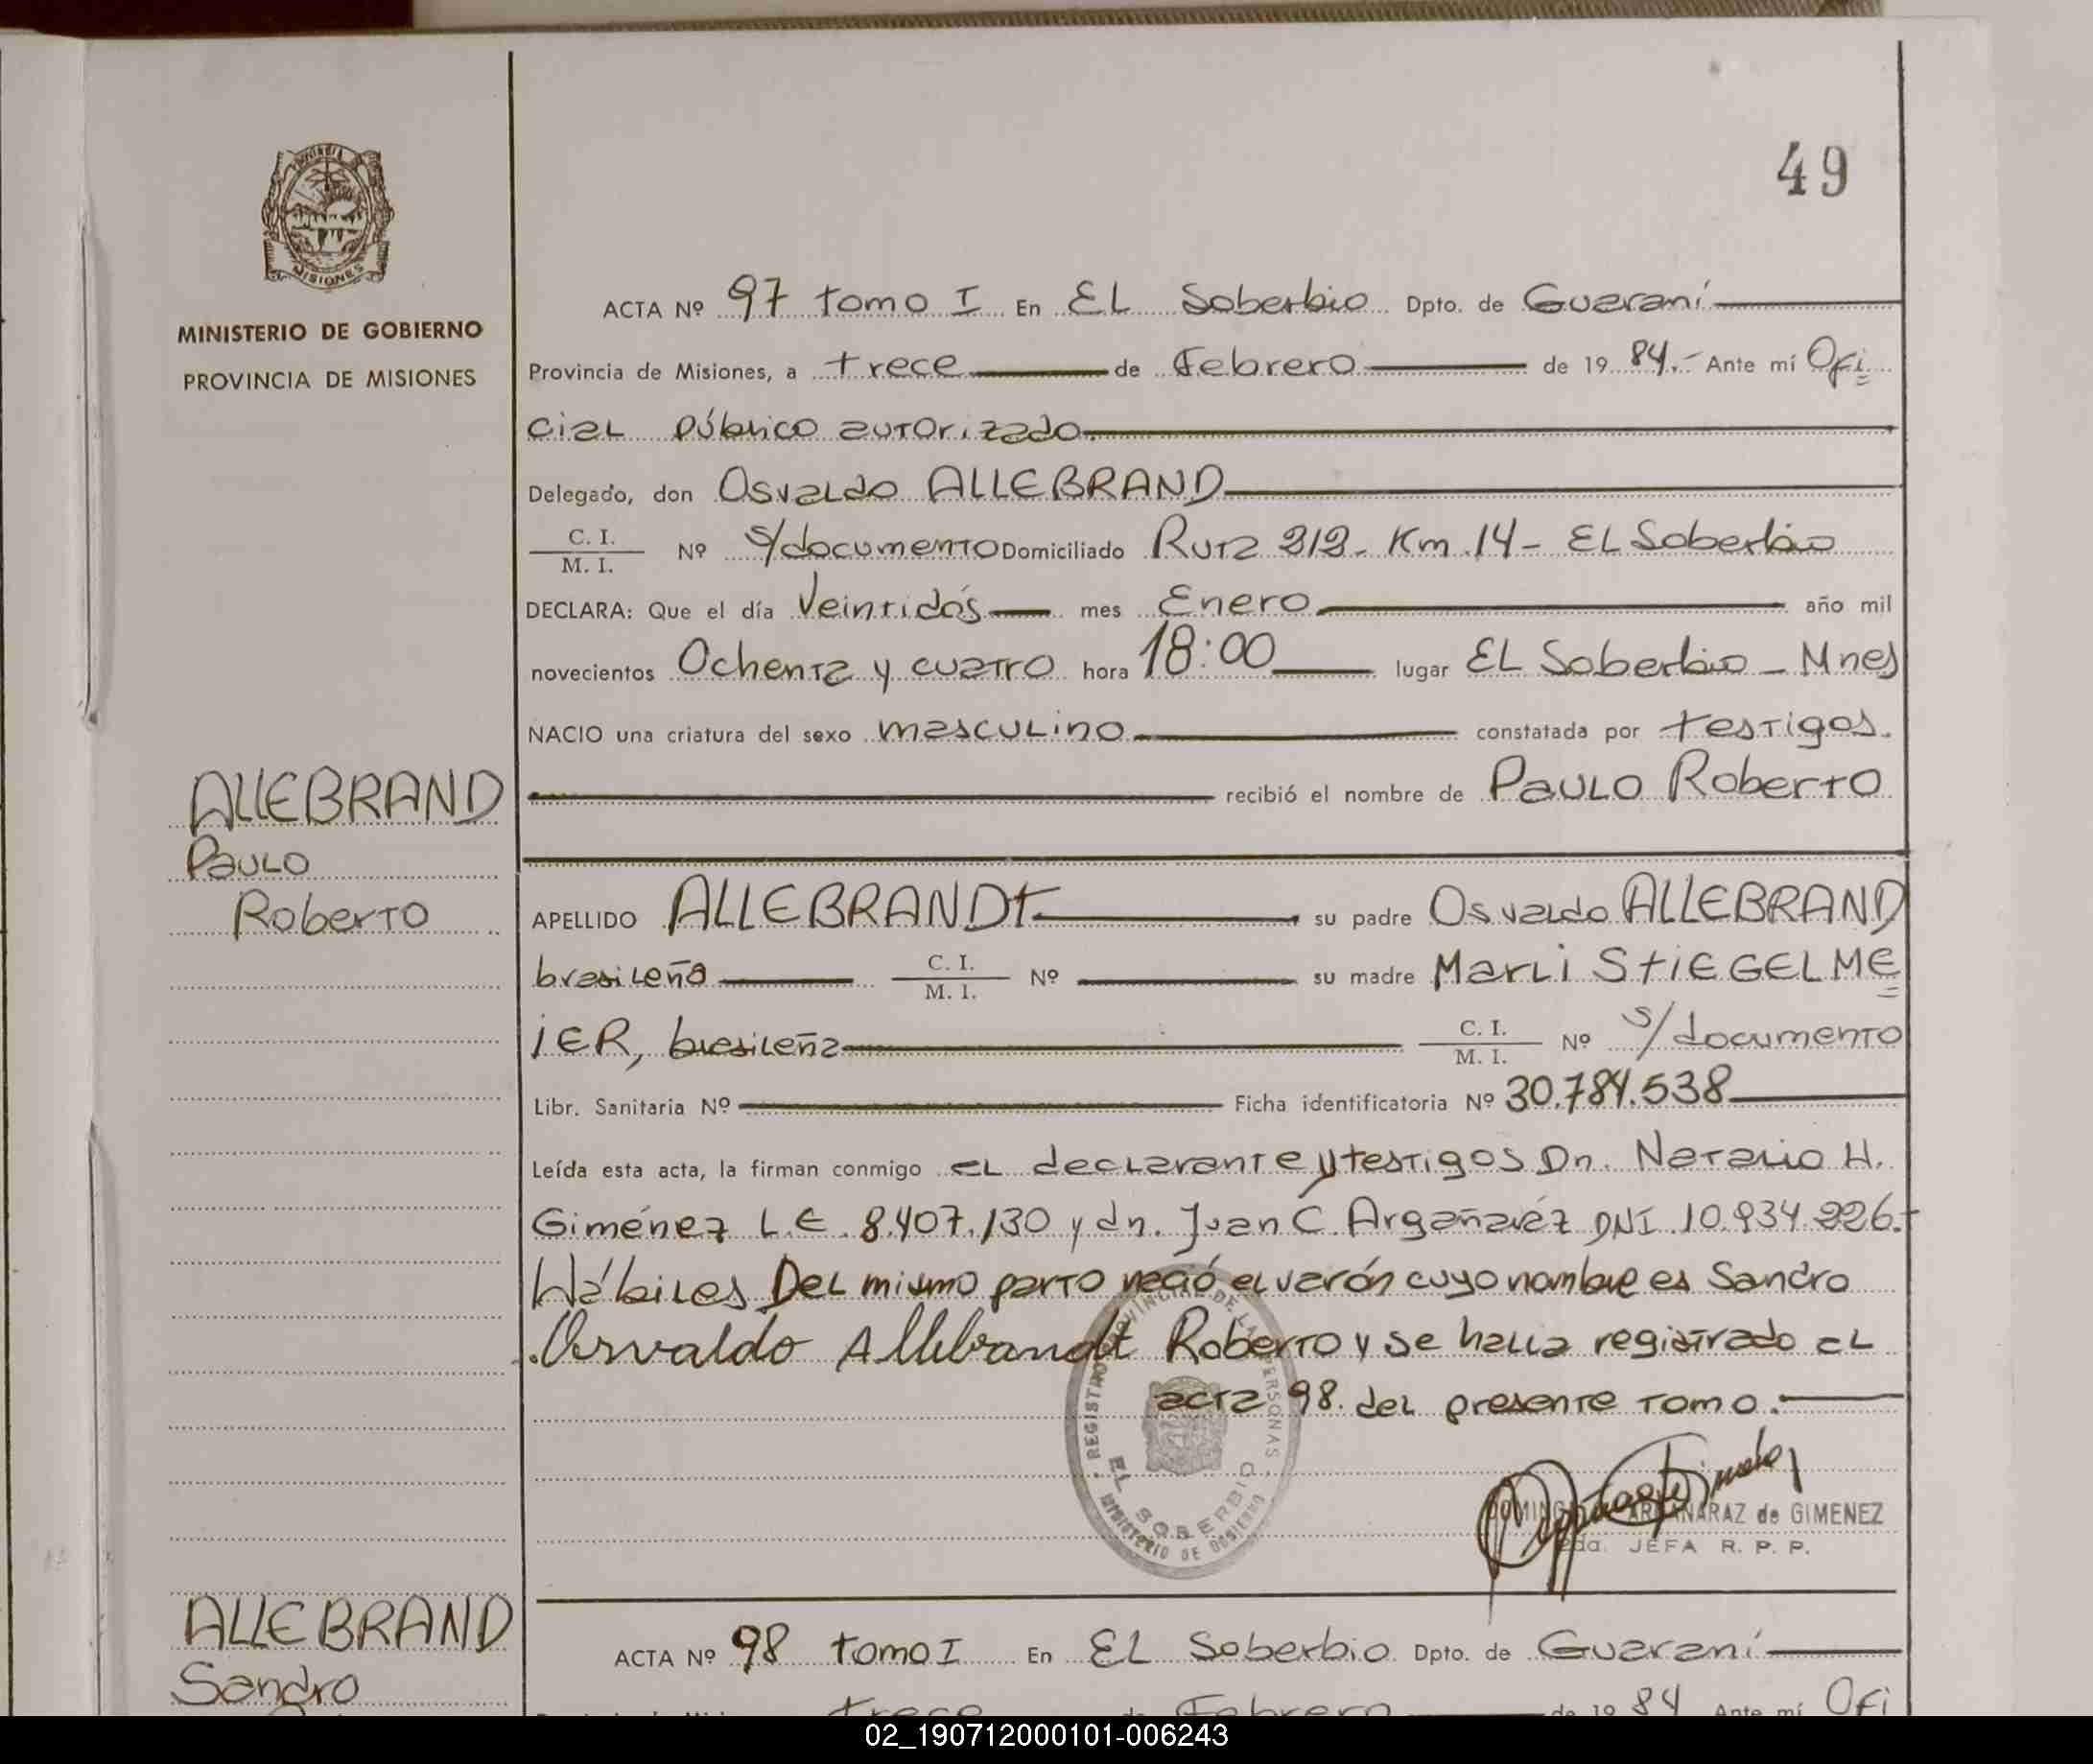 49
PROVINCIA
MISIONES
MINISTERIO DE GOBIERNO
PROVINCIA DE MISIONES
ACTA Nº 97 tomo I En EL Soberbio Dpto. de Guaraní
Provincia de Misiones, a trece de Febrero de 19 84.- Ante mí Ofi
cial público autorizado
Delegado, don Osvaldo ALLEBRAND
C. I.
M. I. Nº s/documento Domiciliado Ruta 212- Km.14- EL Soberbio
DECLARA: Que el día Veintidós mes Enero año mil
novecientos Ochenta y cuatro hora 18:00 lugar EL Soberbio - Mnes
NACIO una criatura del sexo masculino constatada por testigos.
recibió el nombre de PAULO Roberto
ALLEBRAND
PAULO
Roberto
APELLIDO ALLEBRANDt su padre Osvaldo ALLEBRAND
brasileña C. I.
M. I. Nº su madre MARLi StiEGELME
iER, brasileña C. I.
M. I. Nº s/documento
Libr. Sanitaria Nº Ficha identificatoria Nº 30.784.538
Leída esta acta, la firman conmigo EL declarante y testigos Dn. Natalio H.
Giménez L.E. 8.407.130 y dn. Juan C. Argañaréz DNI 10.934.226.
Hábiles Del mismo parto nació el varón cuyo nombre es Sandro
Osvaldo Allebrandt Roberto y se halla registrado EL
acta 98. del presente tomo.
REGISTRO PROVINCIAL DE LAS PERSONAS
EL SOBERBIO
MINISTERIO DE GOBIERNO
ARGAÑARAZ de GIMENEZ
JEFA R. P. P.
ALLEBRAND
Sandro
ACTA Nº 98 tomo I En EL Soberbio Dpto. de Guaraní
trece de Febrero de 19 84 Ante mí Ofi
02_190712000101-006243